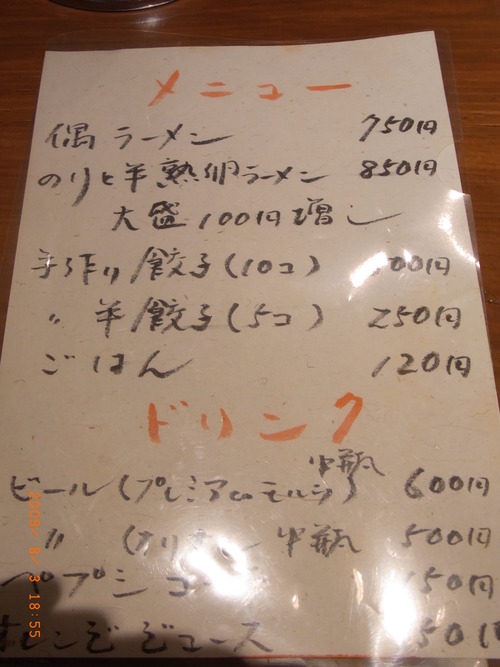 メニュー
偶ラーメン 750円
のりと半熟卵ラーメン 850円
大盛100円増し
手作り餃子(10コ) 500円
〃 半餃子(5コ) 250円
ごはん 120円
ドリンク
中瓶
ビール(プレミアムモルツ) 600円
〃 中瓶 500円
ペプシコーラ 150円
オレンジジュース 150円
2009/ 8/ 3 18:55